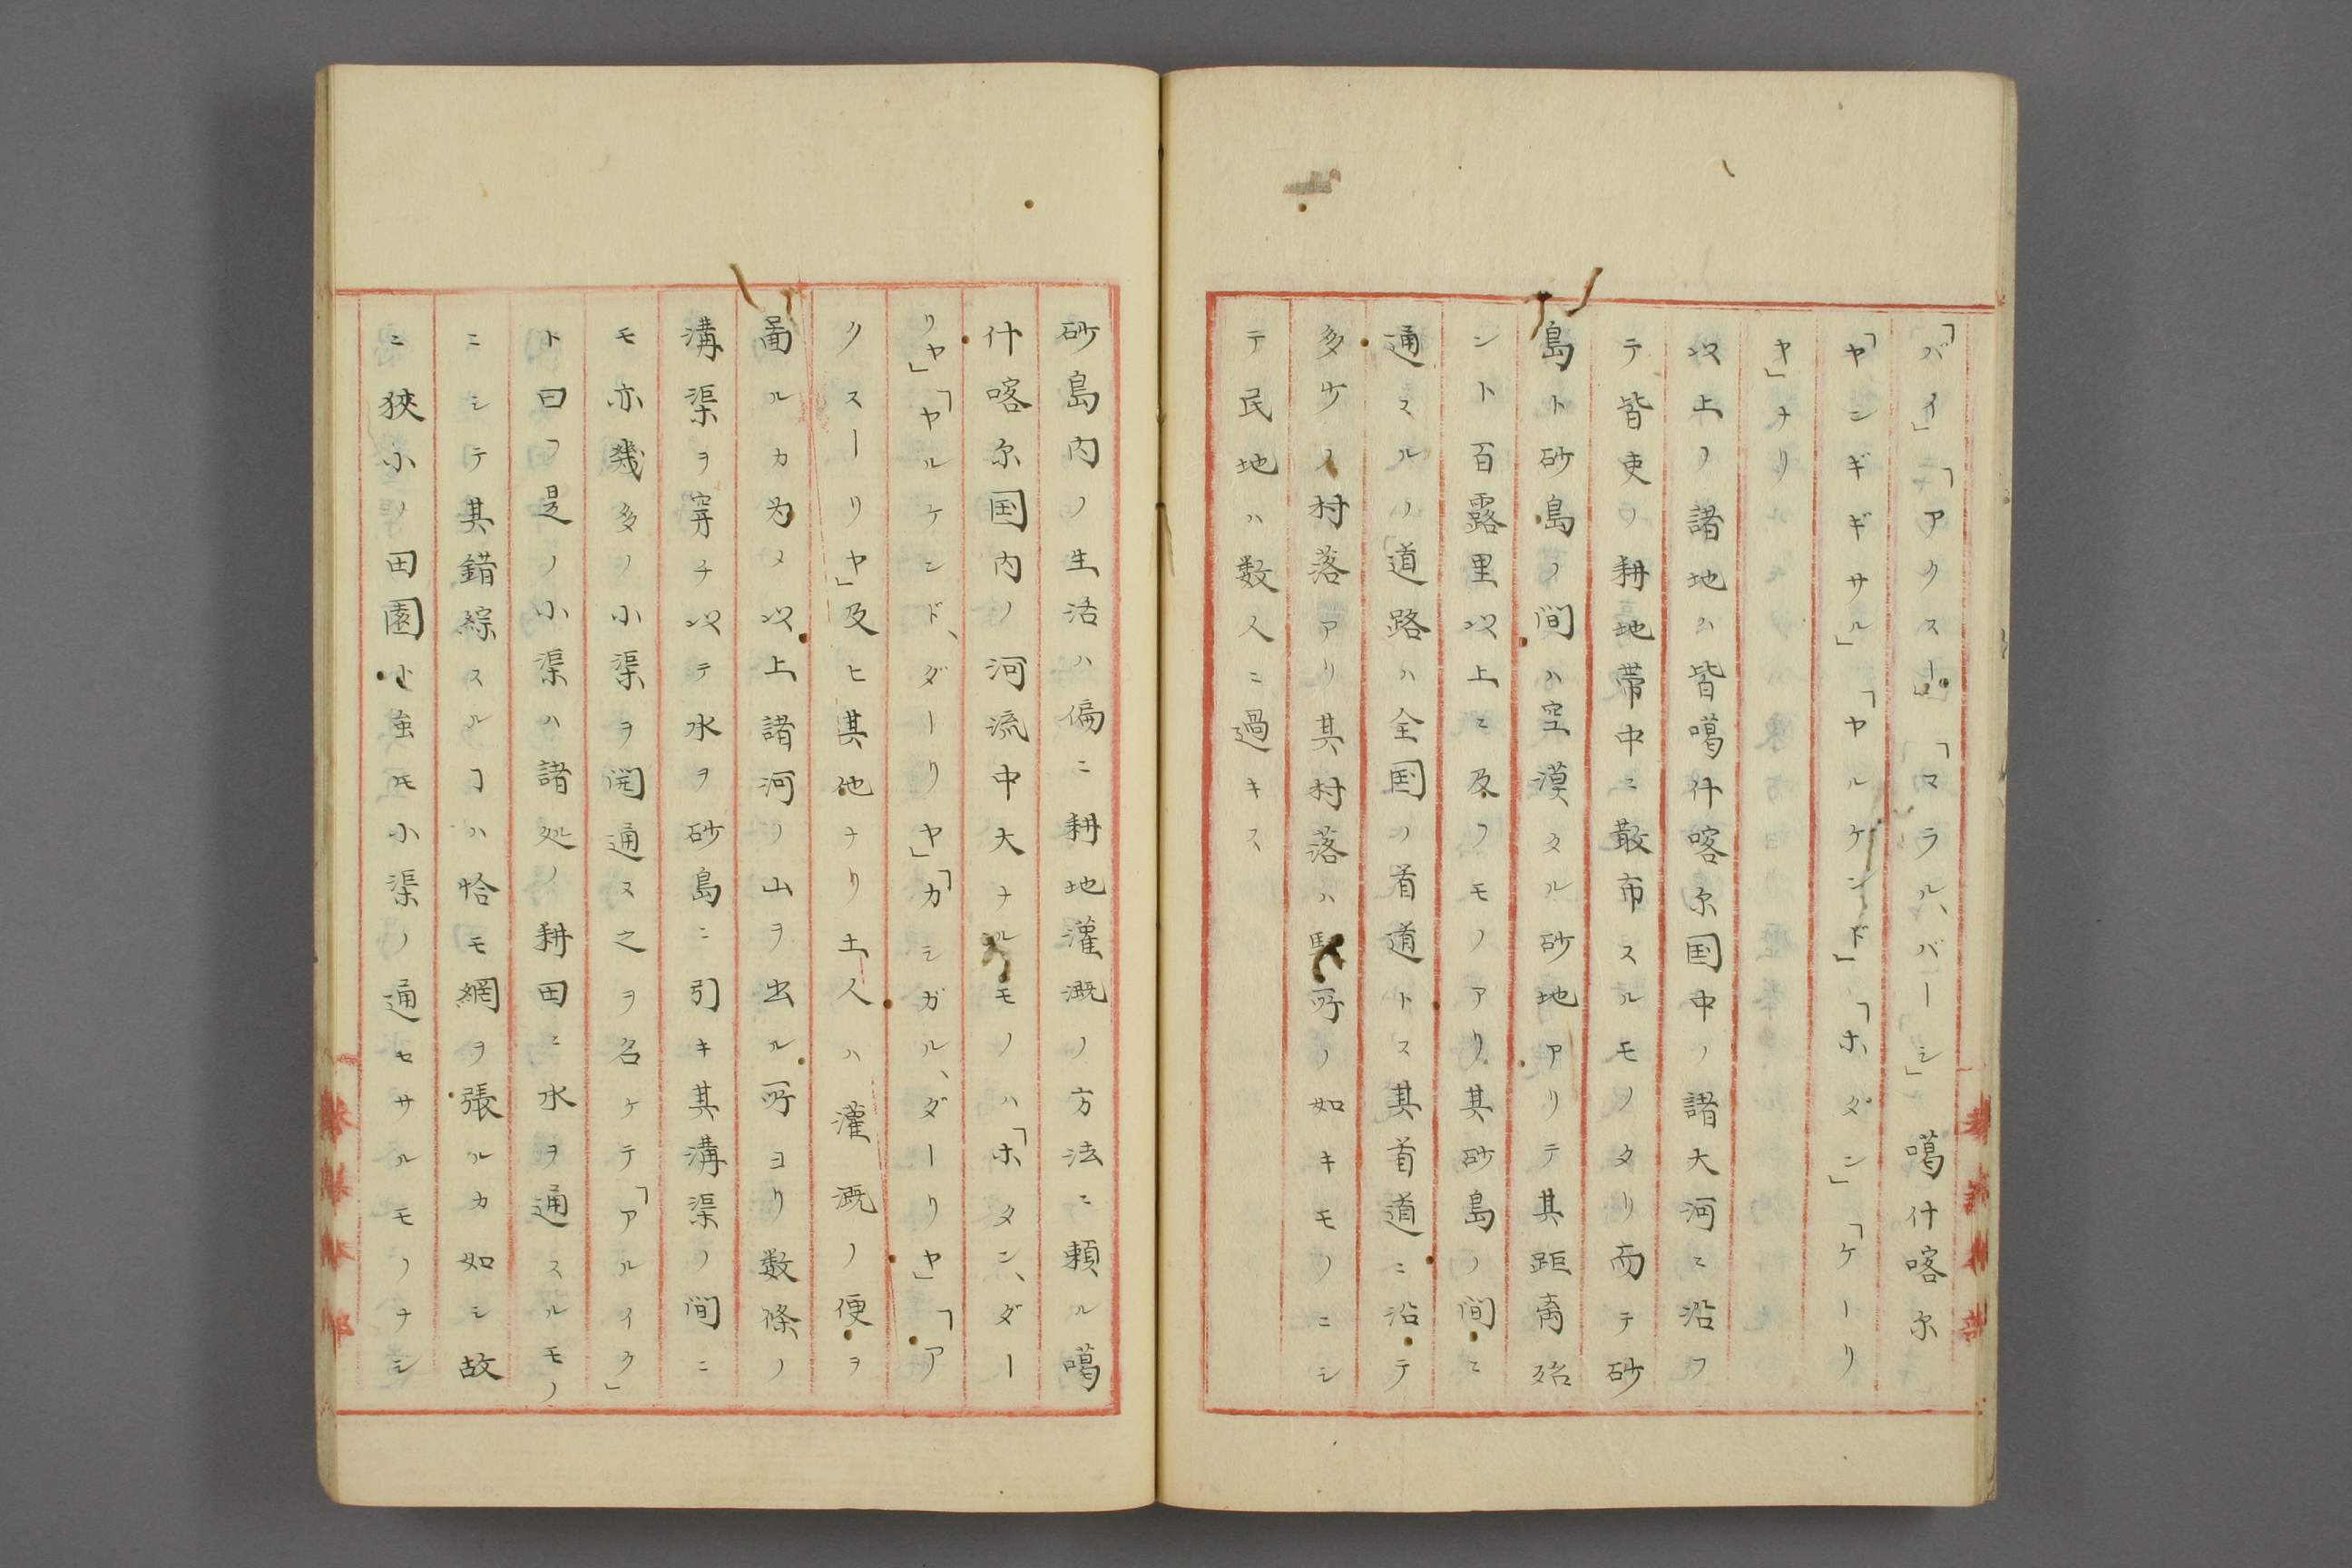 「バイ」「アクスー」「マラル、バーシ」噶什喀尓
「ヤンギギサル」「ヤルケンド」「ホダン」「ケーリ
ヤ」ナリ
以上ノ諸地ハ皆噶什喀尓国中ノ諸大河ニ沿フ
テ皆吏ラ耕地帯中ニ散布スルモノタリ而テ砂
島ト砂島ノ間ハ空漠タル砂地アリテ其距离殆
ント百露里以上ニ及フモノアリ其砂島ノ間ニ
通スルノ道路ハ全国ノ首道トス其首道ニ沿テ
多少ノ村落アリ其村落ハ駅所ノ如キモノニシ
テ民地ハ数人ニ過キス
砂島内ノ生活ハ偏ニ耕地灌漑ノ方法ニ頼ル噶
什喀尓国内ノ河流中大ナルモノハ「ホタン、ダー
リヤ」「ヤルケンド、ダーリヤ」「カシガル、ダーリヤ」「ア
クスーリヤ」及ヒ其他ナリ土人ハ灌漑ノ便ヲ
啚ルカ為メ以上諸河ノ山ヲ出ル所ヨリ数條ノ
溝渠ヲ穿チ以テ水ヲ砂島ニ引キ其溝渠ノ間ニ
モ亦幾多ノ小渠ヲ開通ス之ヲ名ケテ「アルイク」
ト曰フ是ノ小渠ハ諸処ノ耕田ニ水ヲ通スルモノ
ニシテ其錯綜スルヿハ恰モ網ヲ張ルカ如シ故
ニ狹小ノ田園ト虽モ小渠ノ通セサルモノナシ